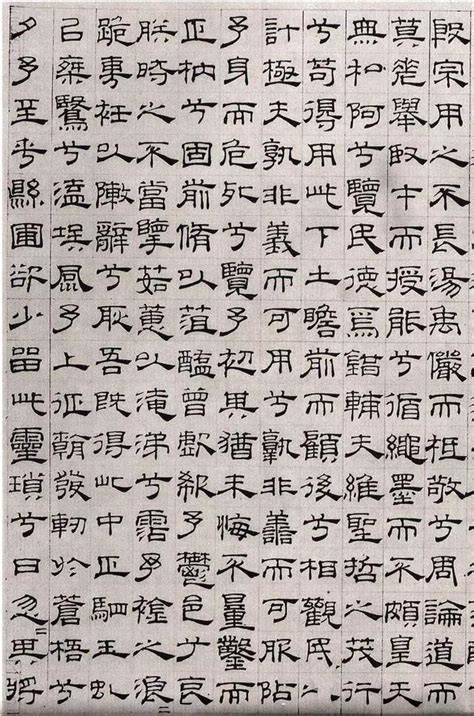 殷宗用之不長湯禹儼而祗敬兮周論道而
莫差舉臤才而授能兮循繩墨而不頗皇天
無私阿兮覽民德焉錯輔夫維聖哲之茂行
兮苟得用此下土瞻前而顧後兮相觀民之
計極夫孰非義而可用兮孰非善而可服阽
予身而危死兮覽予初其猶未悔不量鑿而
正枘兮固前脩以菹醢曾歔欷予鬱邑兮哀
朕時之不當擥茹蕙以淹涕兮霑予襟之浪〻
跪旉衽以陳辭兮耿吾既得此中正駟玉虬
以椉鷖兮溘埃風予上征朝發軔於蒼梧兮
夕予至乎縣圃欲少留此靈瑣兮日忽〻其將